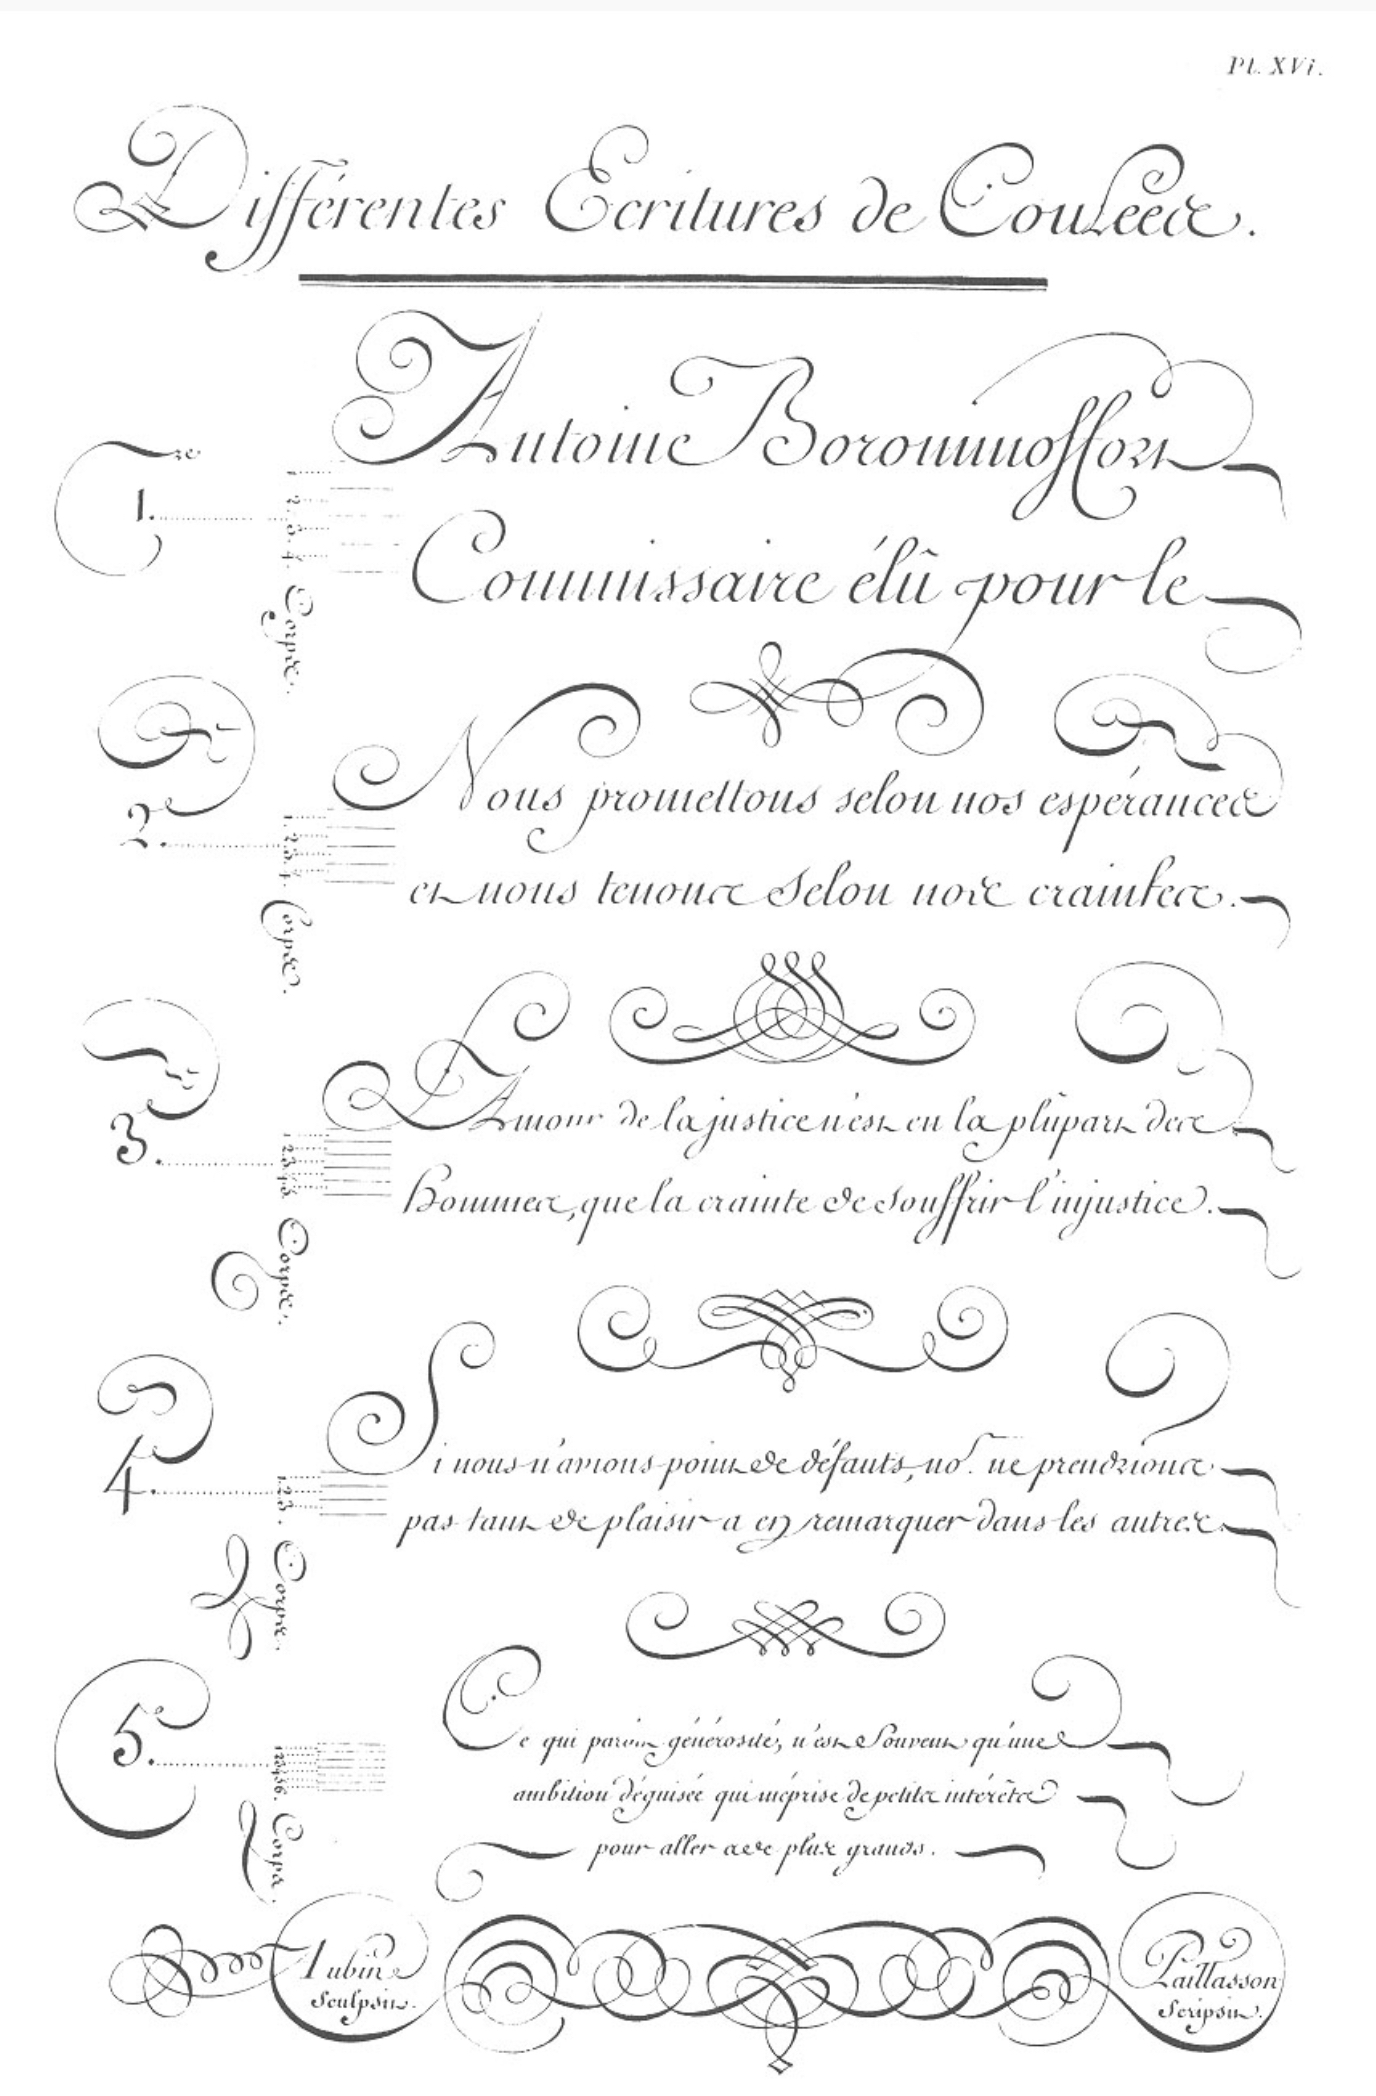 Pl. XVI.
Différentes Ecritures de Coulées.
1.re
1. 2. 3. 4. Corps.
Antoine
Commissaire élû pour le
2.e
1. 2. 3. 4. Corps.
Nous promettons selon nos espérances
et nous tenons selon nos craintes.
3.e
1. 2. 3. 4. 5. Corps.
L'Amour de la justice n'est en la plûpart des
Hommes, que la crainte de souffrir l'injustice.
4.e
1. 2. 3. Corps.
Si nous n'avions point de défauts, no.s ne prendrions
pas tant de plaisir a en remarquer dans les autres.
5.e
1 2 3 4 5 6. Corps.
Ce qui paroit générosité, n'est Souvent qu'une
ambition déguisée qui méprise de petits intérêts
pour aller a de plus grands.
Aubin
Sculpsit.
Paillasson
Scripsit.